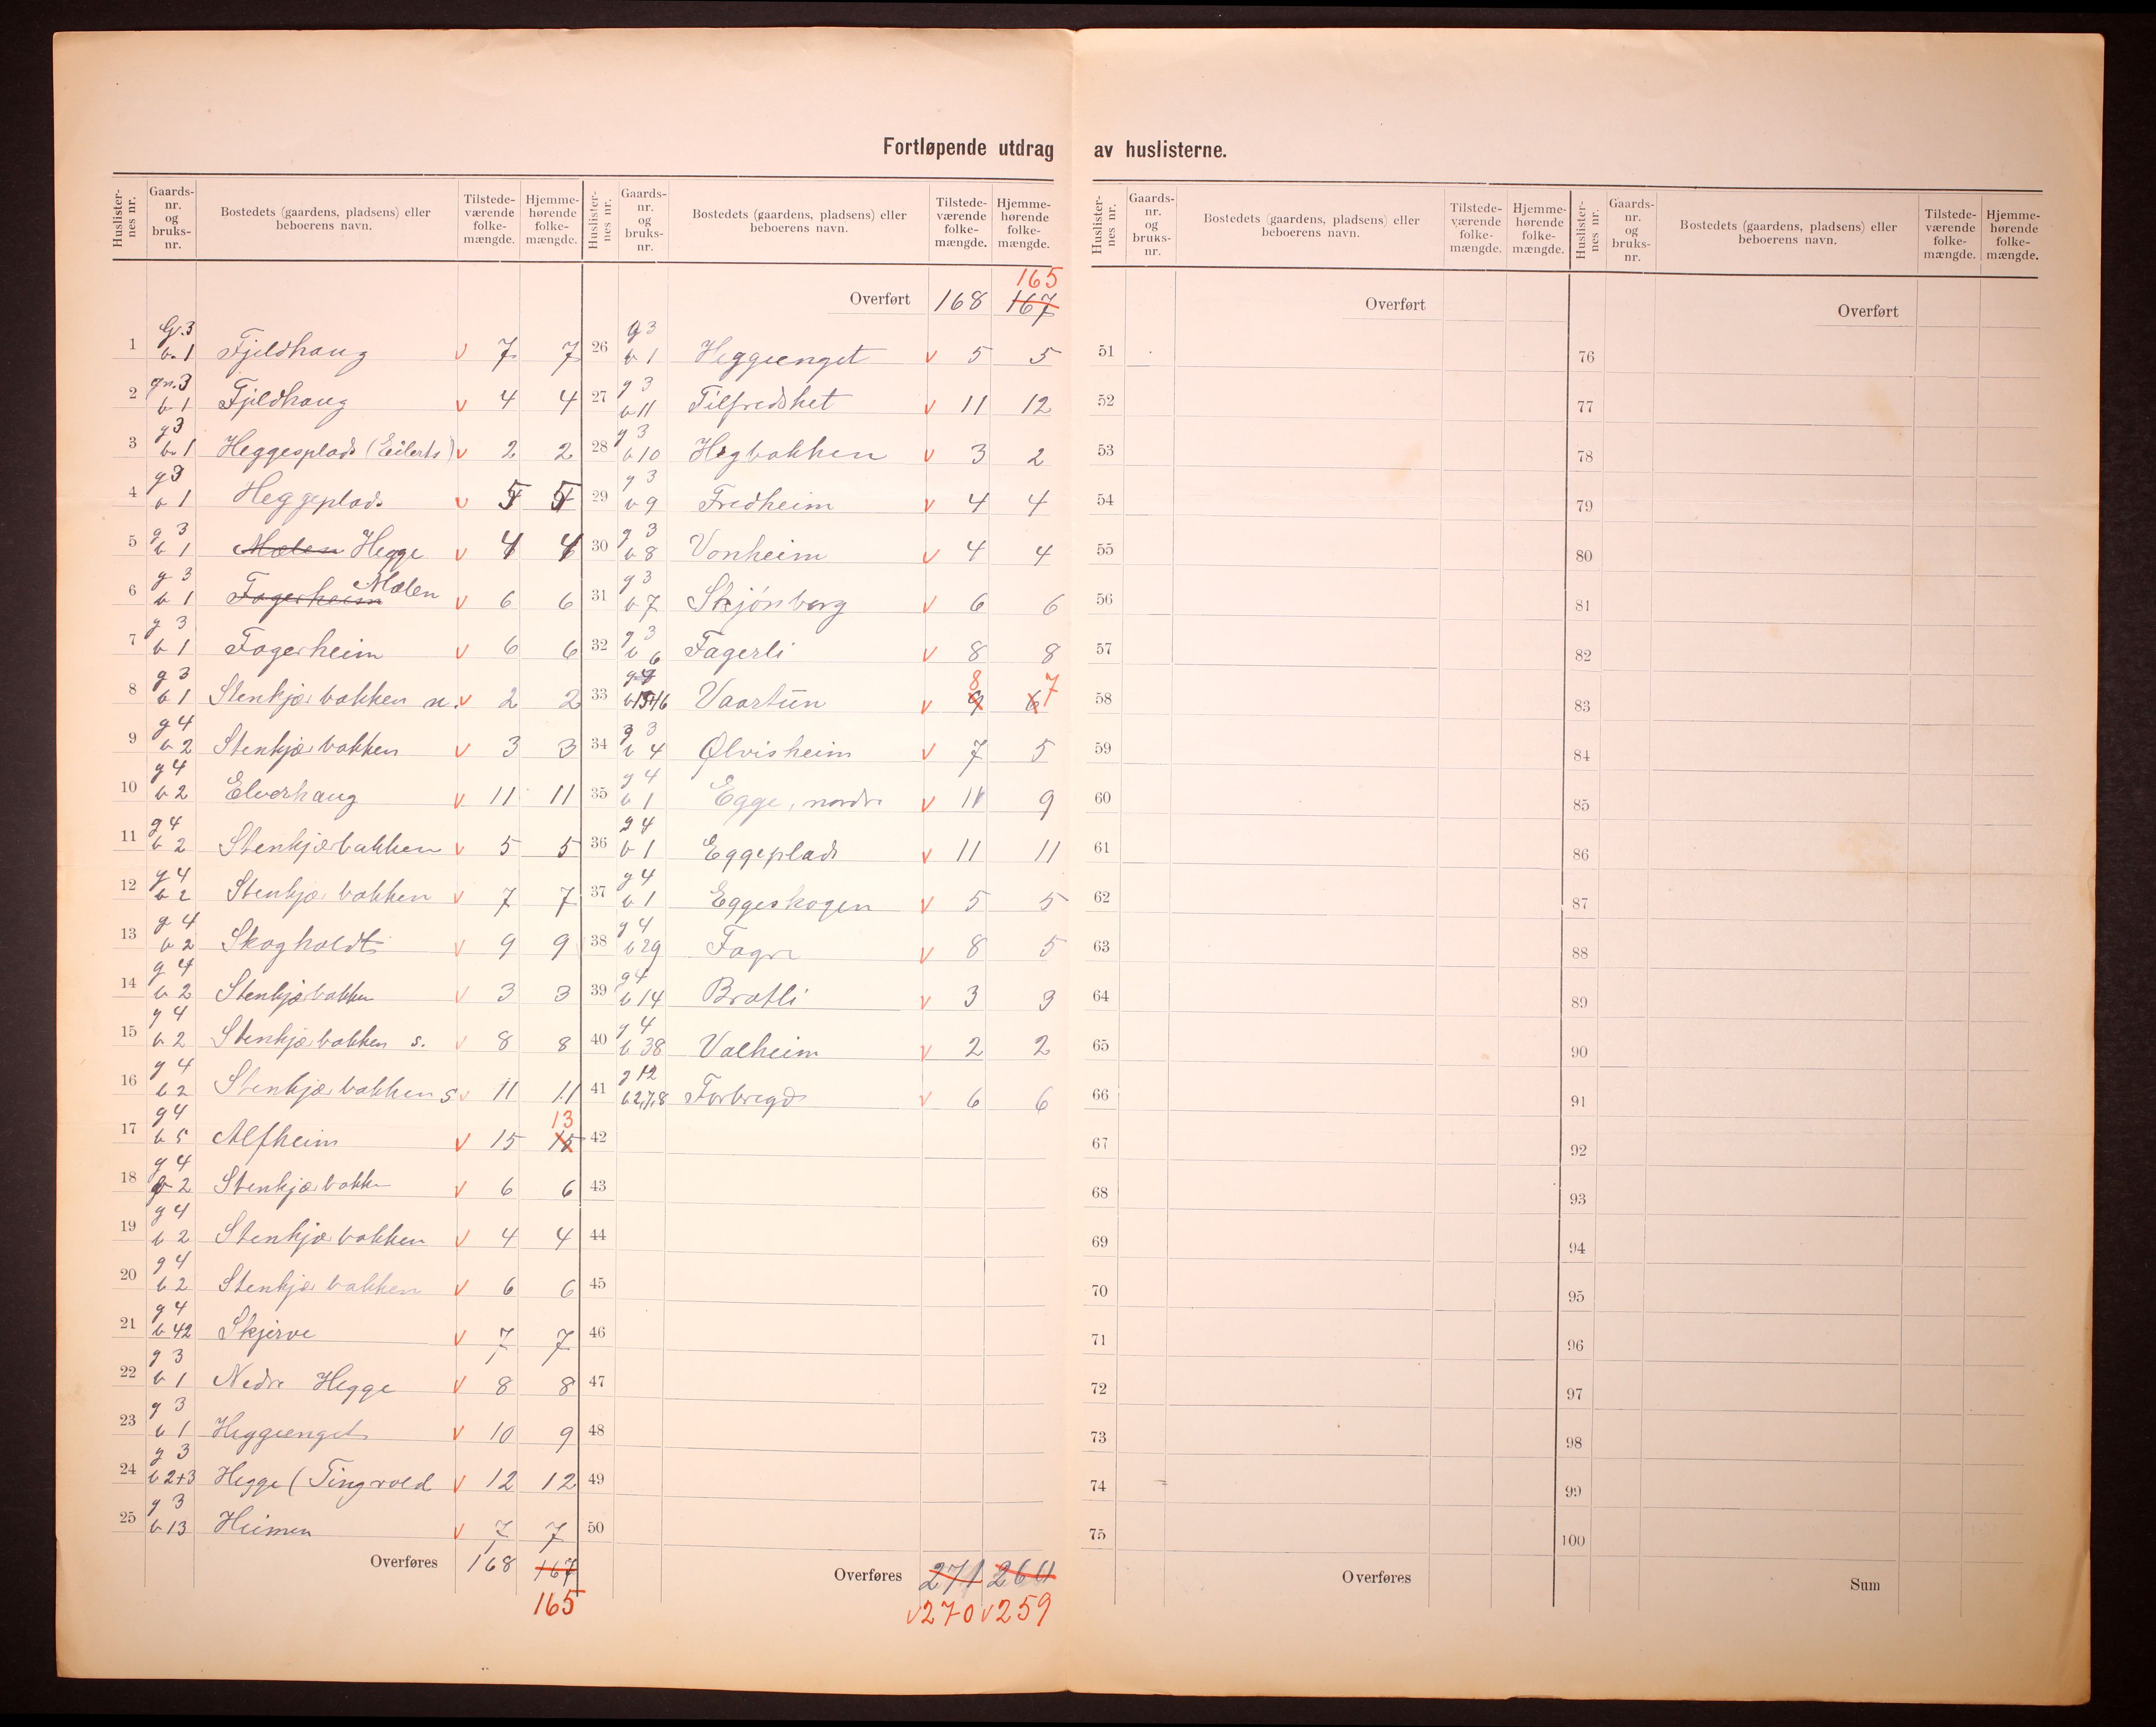 Fortløpende utdrag av huslisterne.
Huslisternes nr. Gaards-nr. og bruks-nr. Bostedets (gaardens, pladsens) eller beboerens navn. Tilstede-værende folke-mængde. Hjemme-hørende folke-mængde.
G.3
1 b.1 Fjeldhaug v 7 7
gn.3
2 b 1 Fjeldhaug v 4 4
g3
3 b.1 Heggesplads (Eilerts) v 2 2
g3
4 b 1 Heggeplads v 5 5
g 3
5 b 1 Mælen Hegge v 4 4
g 3
6 b 1 Fagerheim Mælen v 6 6
g 3
7 b 1 Fagerheim v 6 6
g 3
8 b 1 Stenkjærbakken n. v 2 2
g 4
9 b 2 Stenkjærbakken v 3 3
g 4
10 b 2 Elverhaug v 11 11
g 4
11 b 2 Stenkjærbakken v 5 5
g 4
12 b 2 Stenkjærbakken v 7 7
g 4
13 b 2 Skogholdt v 9 9
g 4
14 b 2 Stenkjærbakken v 3 3
g 4
15 b 2 Stenkjærbakken s. v 8 8
g 4
16 b 2 Stenkjærbakken s v 11 11
g 4 13
17 b 5 Alfheim v 15 15
g 4
18 b 2 Stenkjærbakken v 6 6
g 4
19 b 2 Stenkjærbakken v 4 4
g 4
20 b 2 Stenkjærbakken v 6 6
g 4
21 b 42 Skjerve v 7 7
g 3
22 b 1 Nedre Hegge v 8 8
g 3
23 b 1 Heggeenget v 10 9
g 3
24 b 2+3 Hegge (Tingvold v 12 12
g 3
25 b 13 Heimen v 7 7
Overføres 168 167
165
Huslisternes nr. Gaards-nr. og bruks-nr. Bostedets (gaardens, pladsens) eller beboerens navn. Tilstede-værende folke-mængde. Hjemme-hørende folke-mængde.
165
Overført 168 167
g 3
26 b 1 Heggeenget v 5 5
g 3
27 b 11 Tilfredshet v 11 12
g 3
28 b 10 Hegbakken v 3 2
g 3
29 b 9 Fredheim v 4 4
g 3
30 b 8 Vonheim v 4 4
g 3
31 b 7 Skjønberg v 6 6
g 3
32 b 6 Fagerli v 8 8
8 7
33 Vaartun v 9 6
g 3
34 b 4 Ølvisheim v 7 5
g 4
35 b 1 Egge, nordre v 11 9
g 4
36 b 1 Eggeplads v 11 11
g 4
37 b 1 Eggeskogen v 5 5
g 4
38 b 29 Fagre v 8 5
g 4
39 b 14 Bratli v 3 3
g 4
40 b 38 Valheim v 2 2
g 12
41 b 2,7,8 Forbregd v 6 6
42
43
44
45
46
47
48
49
50
Overføres 271 260
v 270 v 259
Huslisternes nr. Gaards-nr. og bruks-nr. Bostedets (gaardens, pladsens) eller beboerens navn. Tilstede-værende folke-mængde. Hjemme-hørende folke-mængde.
Overført
51
52
53
54
55
56
57
58
59
60
61
62
63
64
65
66
67
68
69
70
71
72
73
74
75
Overføres
Huslisternes nr. Gaards-nr. og bruks-nr. Bostedets (gaardens, pladsens) eller beboerens navn. Tilstede-værende folke-mængde. Hjemme-hørende folke-mængde.
Overført
76
77
78
79
80
81
82
83
84
85
86
87
88
89
90
91
92
93
94
95
96
97
98
99
100
Sum